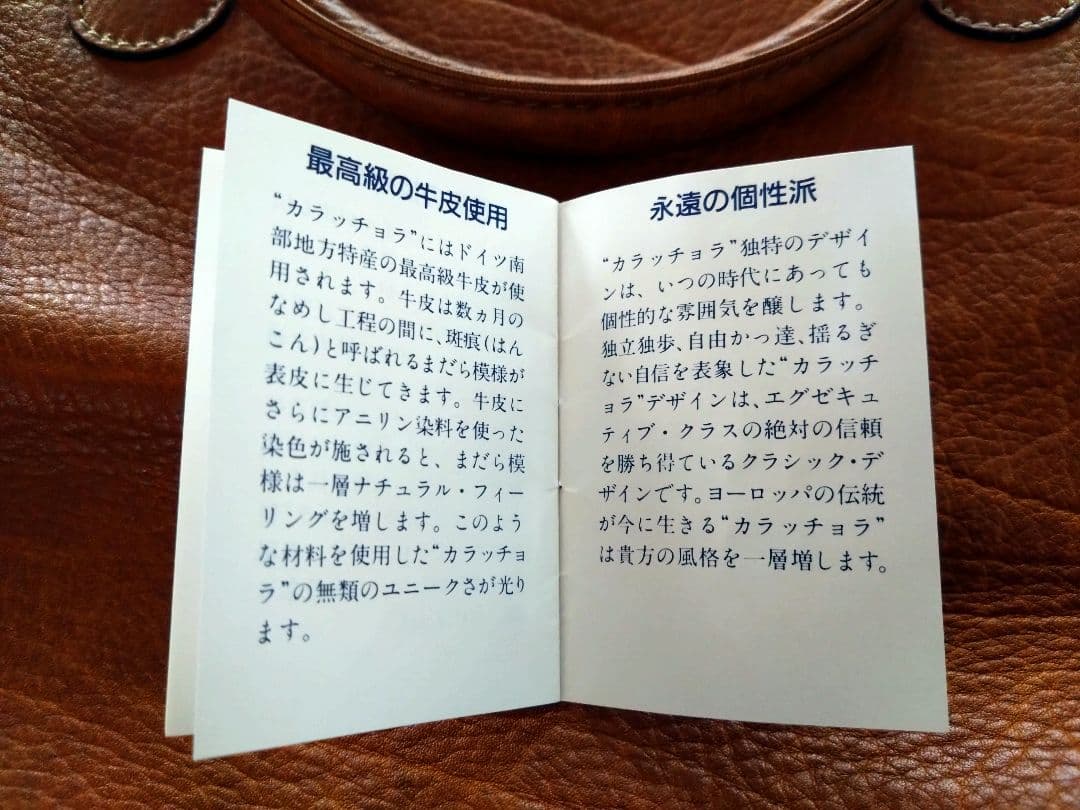 最高級の牛皮使用
“カラッチョラ”にはドイツ南
部地方特産の最高級牛皮が使
用されます。牛皮は数ヵ月の
なめし工程の間に、斑痕(はん
こん)と呼ばれるまだら模様が
表皮に生じてきます。牛皮に
さらにアニリン染料を使った
染色が施されると、まだら模
様は一層ナチュラル・フィー
リングを増します。このよう
な材料を使用した“カラッチョ
ラ”の無類のユニークさが光り
ます。
永遠の個性派
“カラッチョラ”独特のデザイ
ンは、いつの時代にあっても
個性的な雰囲気を醸します。
独立独歩、自由かっ達、揺るぎ
ない自信を表象した“カラッチ
ョラ”デザインは、エグゼキュ
ティブ・クラスの絶対の信頼
を勝ち得ているクラシック・デ
ザインです。ヨーロッパの伝統
が今に生きる“カラッチョラ”
は貴方の風格を一層増します。